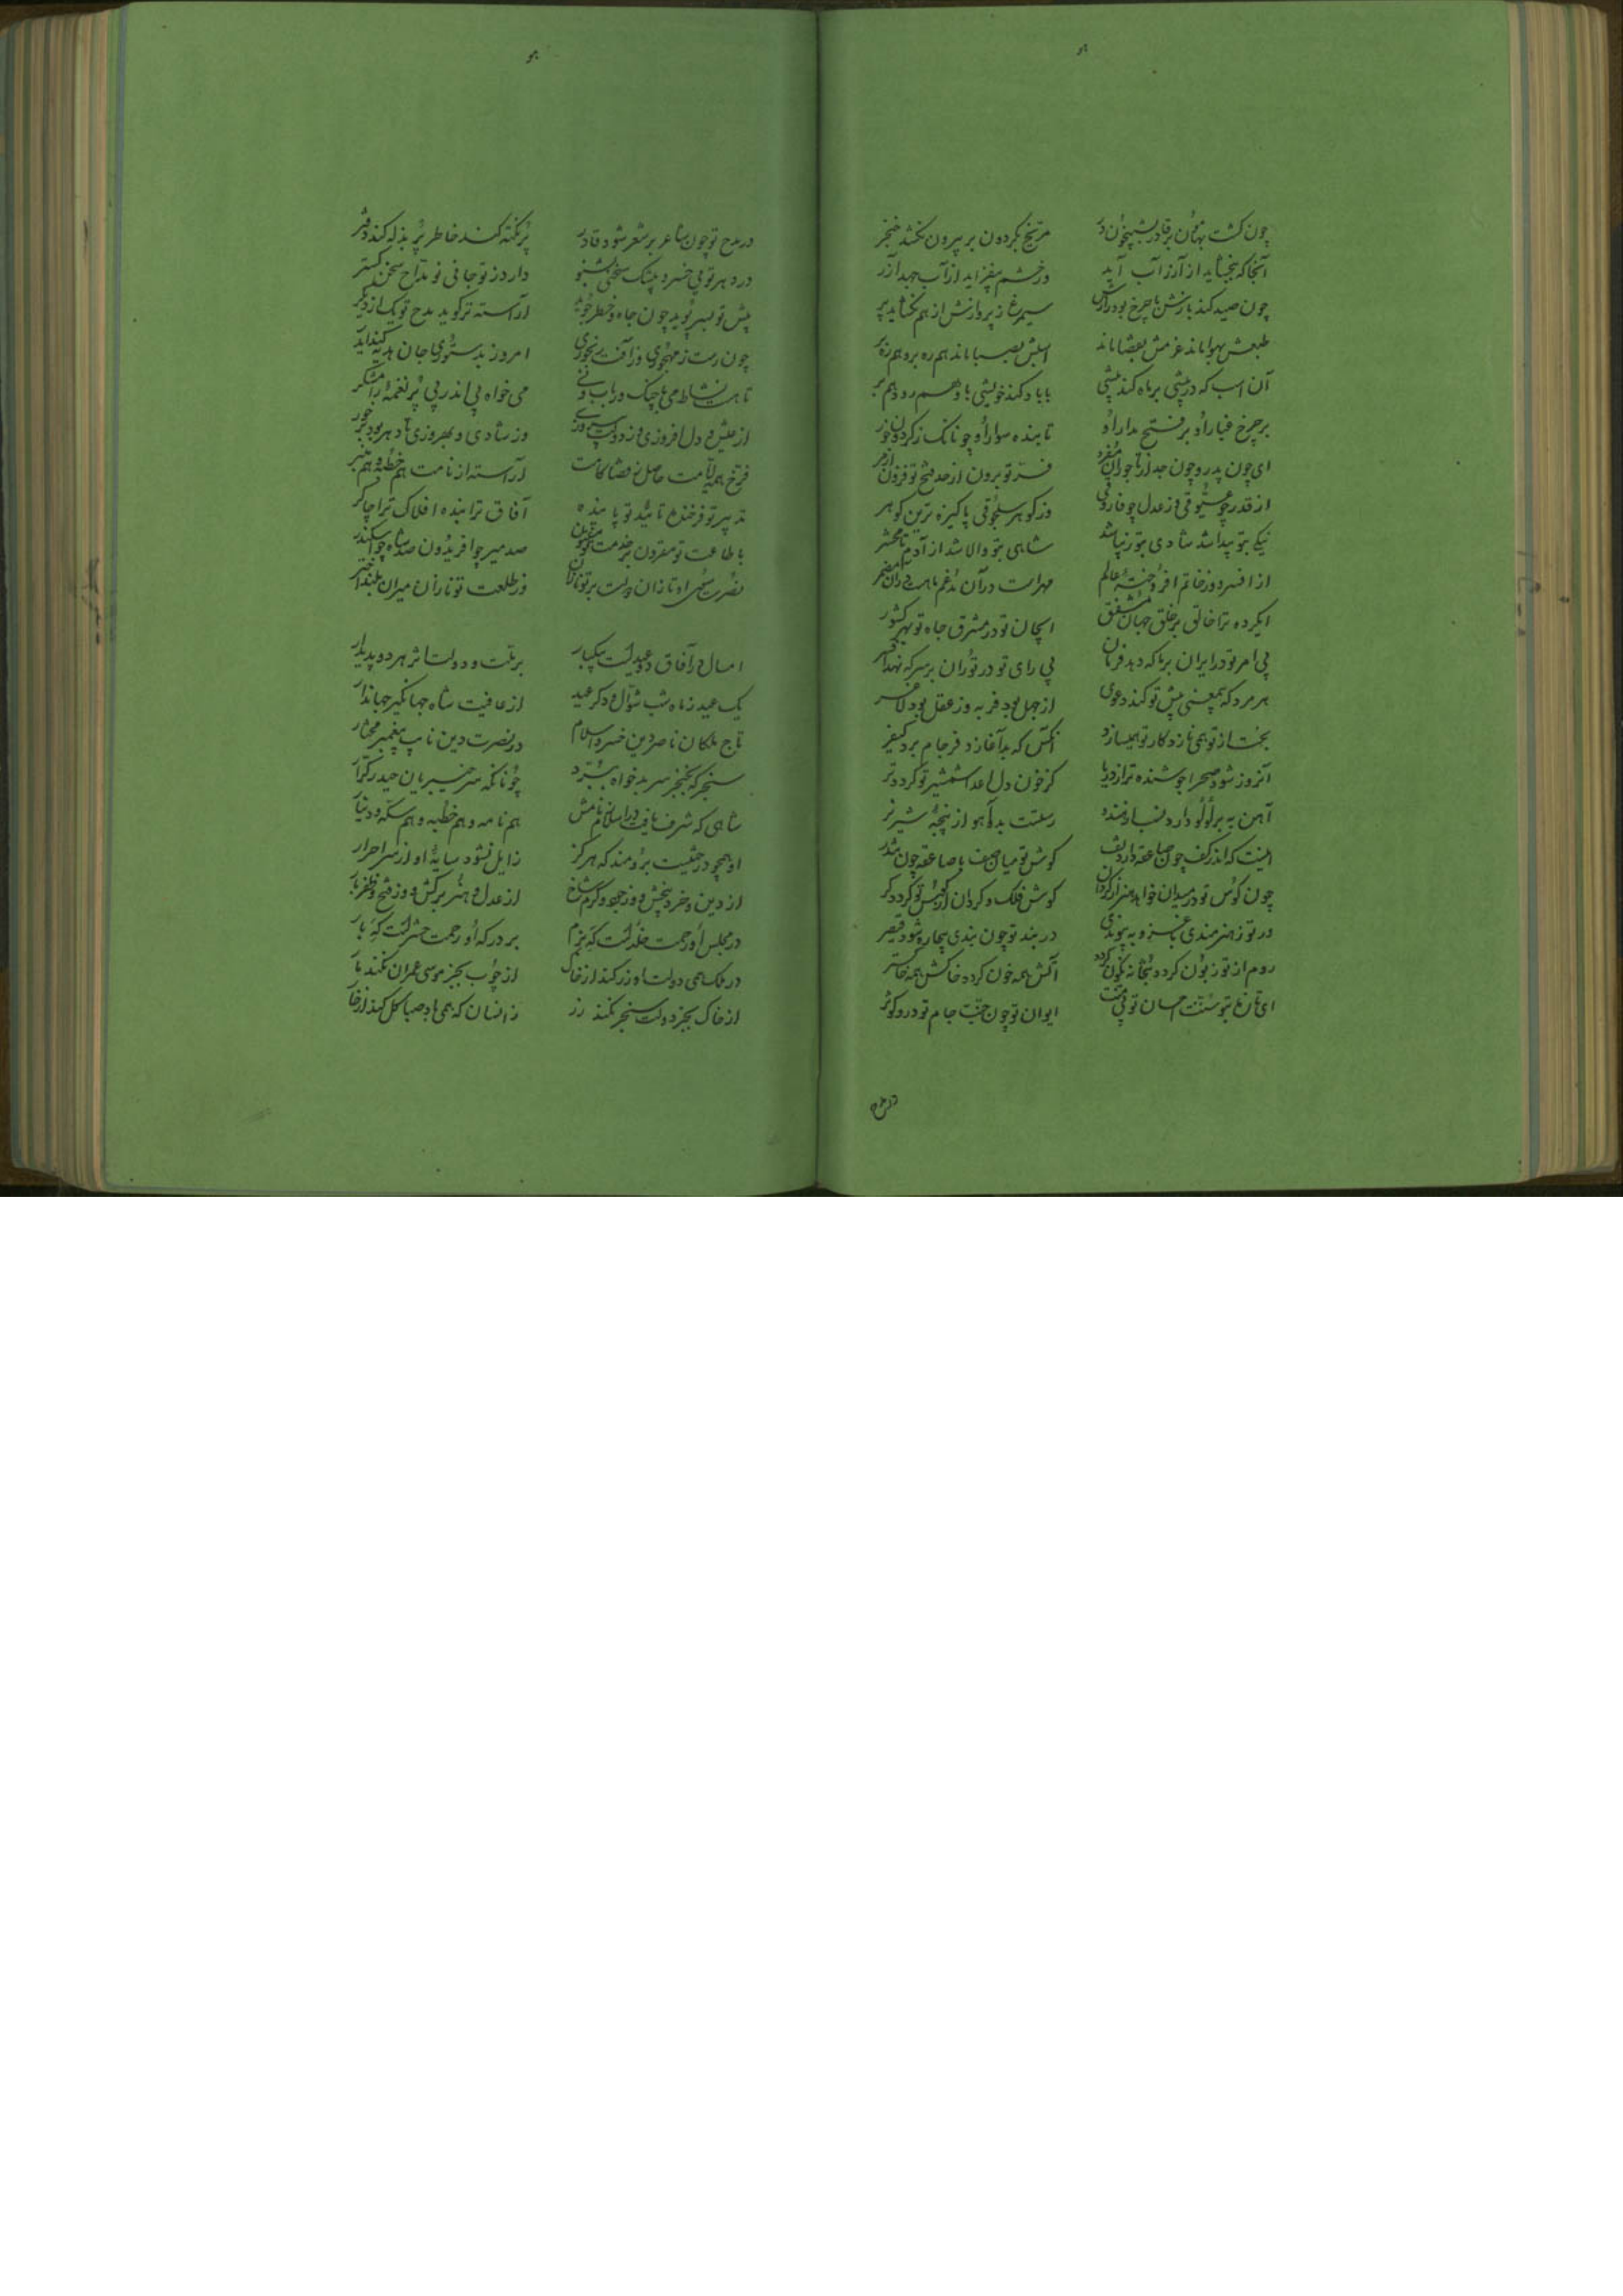 چون گشت بهامون بر قادر بشبیخون در مریخ بگردون بر بیرون نکشد خنجر
آنجا که ببخشاید از آزر آب آید ور خشم بیفزاید از آب جهد آزر
چون صید کند بازش با چرخ بود رازش سیمرغ ز پروازش از هم نگشاید پر
طبعش بهوا ماند عزمش بقضا ماند اسبش بصبا ماند هم ره بر و هم ره
آن اسب که در پیشی بر ماه کند پیشی با باد کند خویشی با وهم رود هم بر
بر چرخ غبار او بر فتح مدار او تابنده سوار او چونانک ز گردون خور
ای چون پدر و چون جد از تاجوران مفرد فر تو برون از حد فتح تو فزون از مر
از قدر چو عیوقی وز عدل چو فاروقی وز گوهر سلجوقی پاکیزه ترین گوهر
نیکی بتو پیدا شد شادی بتو زیبا شد شاهی بتو والا شد از آدم تا محشر
از افسر و وز خاتم افروخته عالم مهر است در آن مدغم ماهست در آن مضمر
ای کرده ترا خالق بر خلق جهان مشفق ایجان تو در مشرق جاه تو بهر کشور
بی امر تو در ایران بر ما که دهد فرمان بی رای تو در توران بر سر که نهد افسر
هر مرد که بمعنی پیش تو کند دعوی از جهل بود فربه وز عقل بود لاغر
بخت از تو همی نازد کار تو همیسازد آنکس که بد آغازد فرجام برد کیفر
آنروز شود صحرا جوشنده تر از دریا کز خون دل اعدا شمشیر تو گردد تر
آهن به بر لؤلؤ دارد
اینت که اندر کف چون صاعقه دارد تف گوش تو میان صف با صاعقه چون تندر
چون کوس تو در میدان خواهد هنر از گردان گوش فلک گردان از کوس تو گردد کر
ور تو ز هنرمندی با غز و به پیوندی در بند تو چون بندی بیچاره شود قیصر
روم از تو زبون گردد بتخانه نگون گردد آبش همه خون گردد خاکش همه خاکستر
ای تازه بتو سنت احسان تو بی منت ایوان تو چون جنت جام تو در او کوثر
در مدح تو چون شاعر بر شعر شود قادر پر نکته کند خاطر پر بذله کند دفتر
دارد ز تو جانی نو مداح سخن گستر
پیش تو بسر پوید چون جاه و خطر جوید آراسته تر گوید مدح تو یک از دیگر
چون رست ز مهجوری وز آفت رنجوری امروز بدستوری جان هدیه کند ایدر
تا هست نشاط می با چنگ و رباب و نی می خواه پی اندر پی پر نغمه رامشگر
از عیش و دل افروزی وز دولت پیروزی وز شادی و بهروزی تا دهر بود بر خور
فرخ همه ایامت حاصل ز قضا کامت آراسته از نامت هم خطبه و هم منبر
تدبیر تو فرخنده تأیید تو پاینده آفاق ترا بنده افلاک ترا چاکر
با طاعت تو مقرون بر خدمت تو مفتون صد میر چو افریدون صد شاه چو اسکندر
وز طلعت تو نازان میران بلند اختر
امسال در آفاق دو عیدست بیکبار بر ملت و دولت اثر هر دو پدیدار
یک عید ز ماه شب شوال و دگر عید از عافیت شاه جهانگیر جهاندار
تاج ملکان ناصر دین خسرو اسلام در نصرت دین نایب پیغمبر مختار
سنجر که بخنجر سر بدخواه ببرد چونانکه سر خیبریان حیدر کرار
شاهی که شرف یافت در اسلام بنامش هم نامه و هم خطبه و هم سکه و دینار
او همچو درختیست برومند که هرگز زایل نشود سایه او از سر احرار
از دین و خرد بیخش و وز جود و کرم شاخ از عدل و هنر برگش و وز فتح و ظفر بار
در مجلس او رحمت خلدست گه بزم بر درگه او زحمت حشرست گه بار
در ملک همی دولت او زر کند از خاک از چوب بجز موسی عمران نکند مار
از خاک بجز دولت سنجر نکند زر زانسان که همی باد صبا گل کند از خار